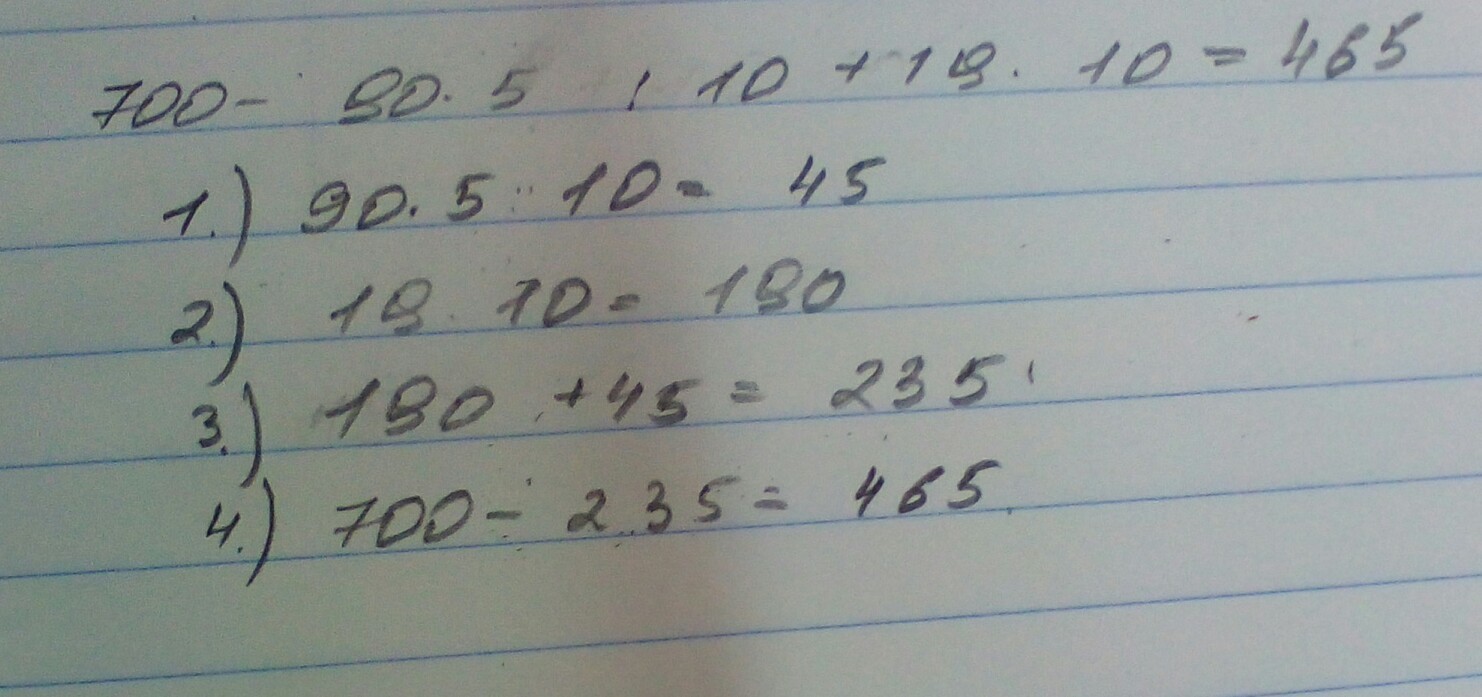 700- 90. 5 : 10 + 19. 10 = 465
1.) 90. 5 : 10 = 45
2.) 19. 10 = 190
3.) 190 + 45 = 235
4.) 700 - 235 = 465